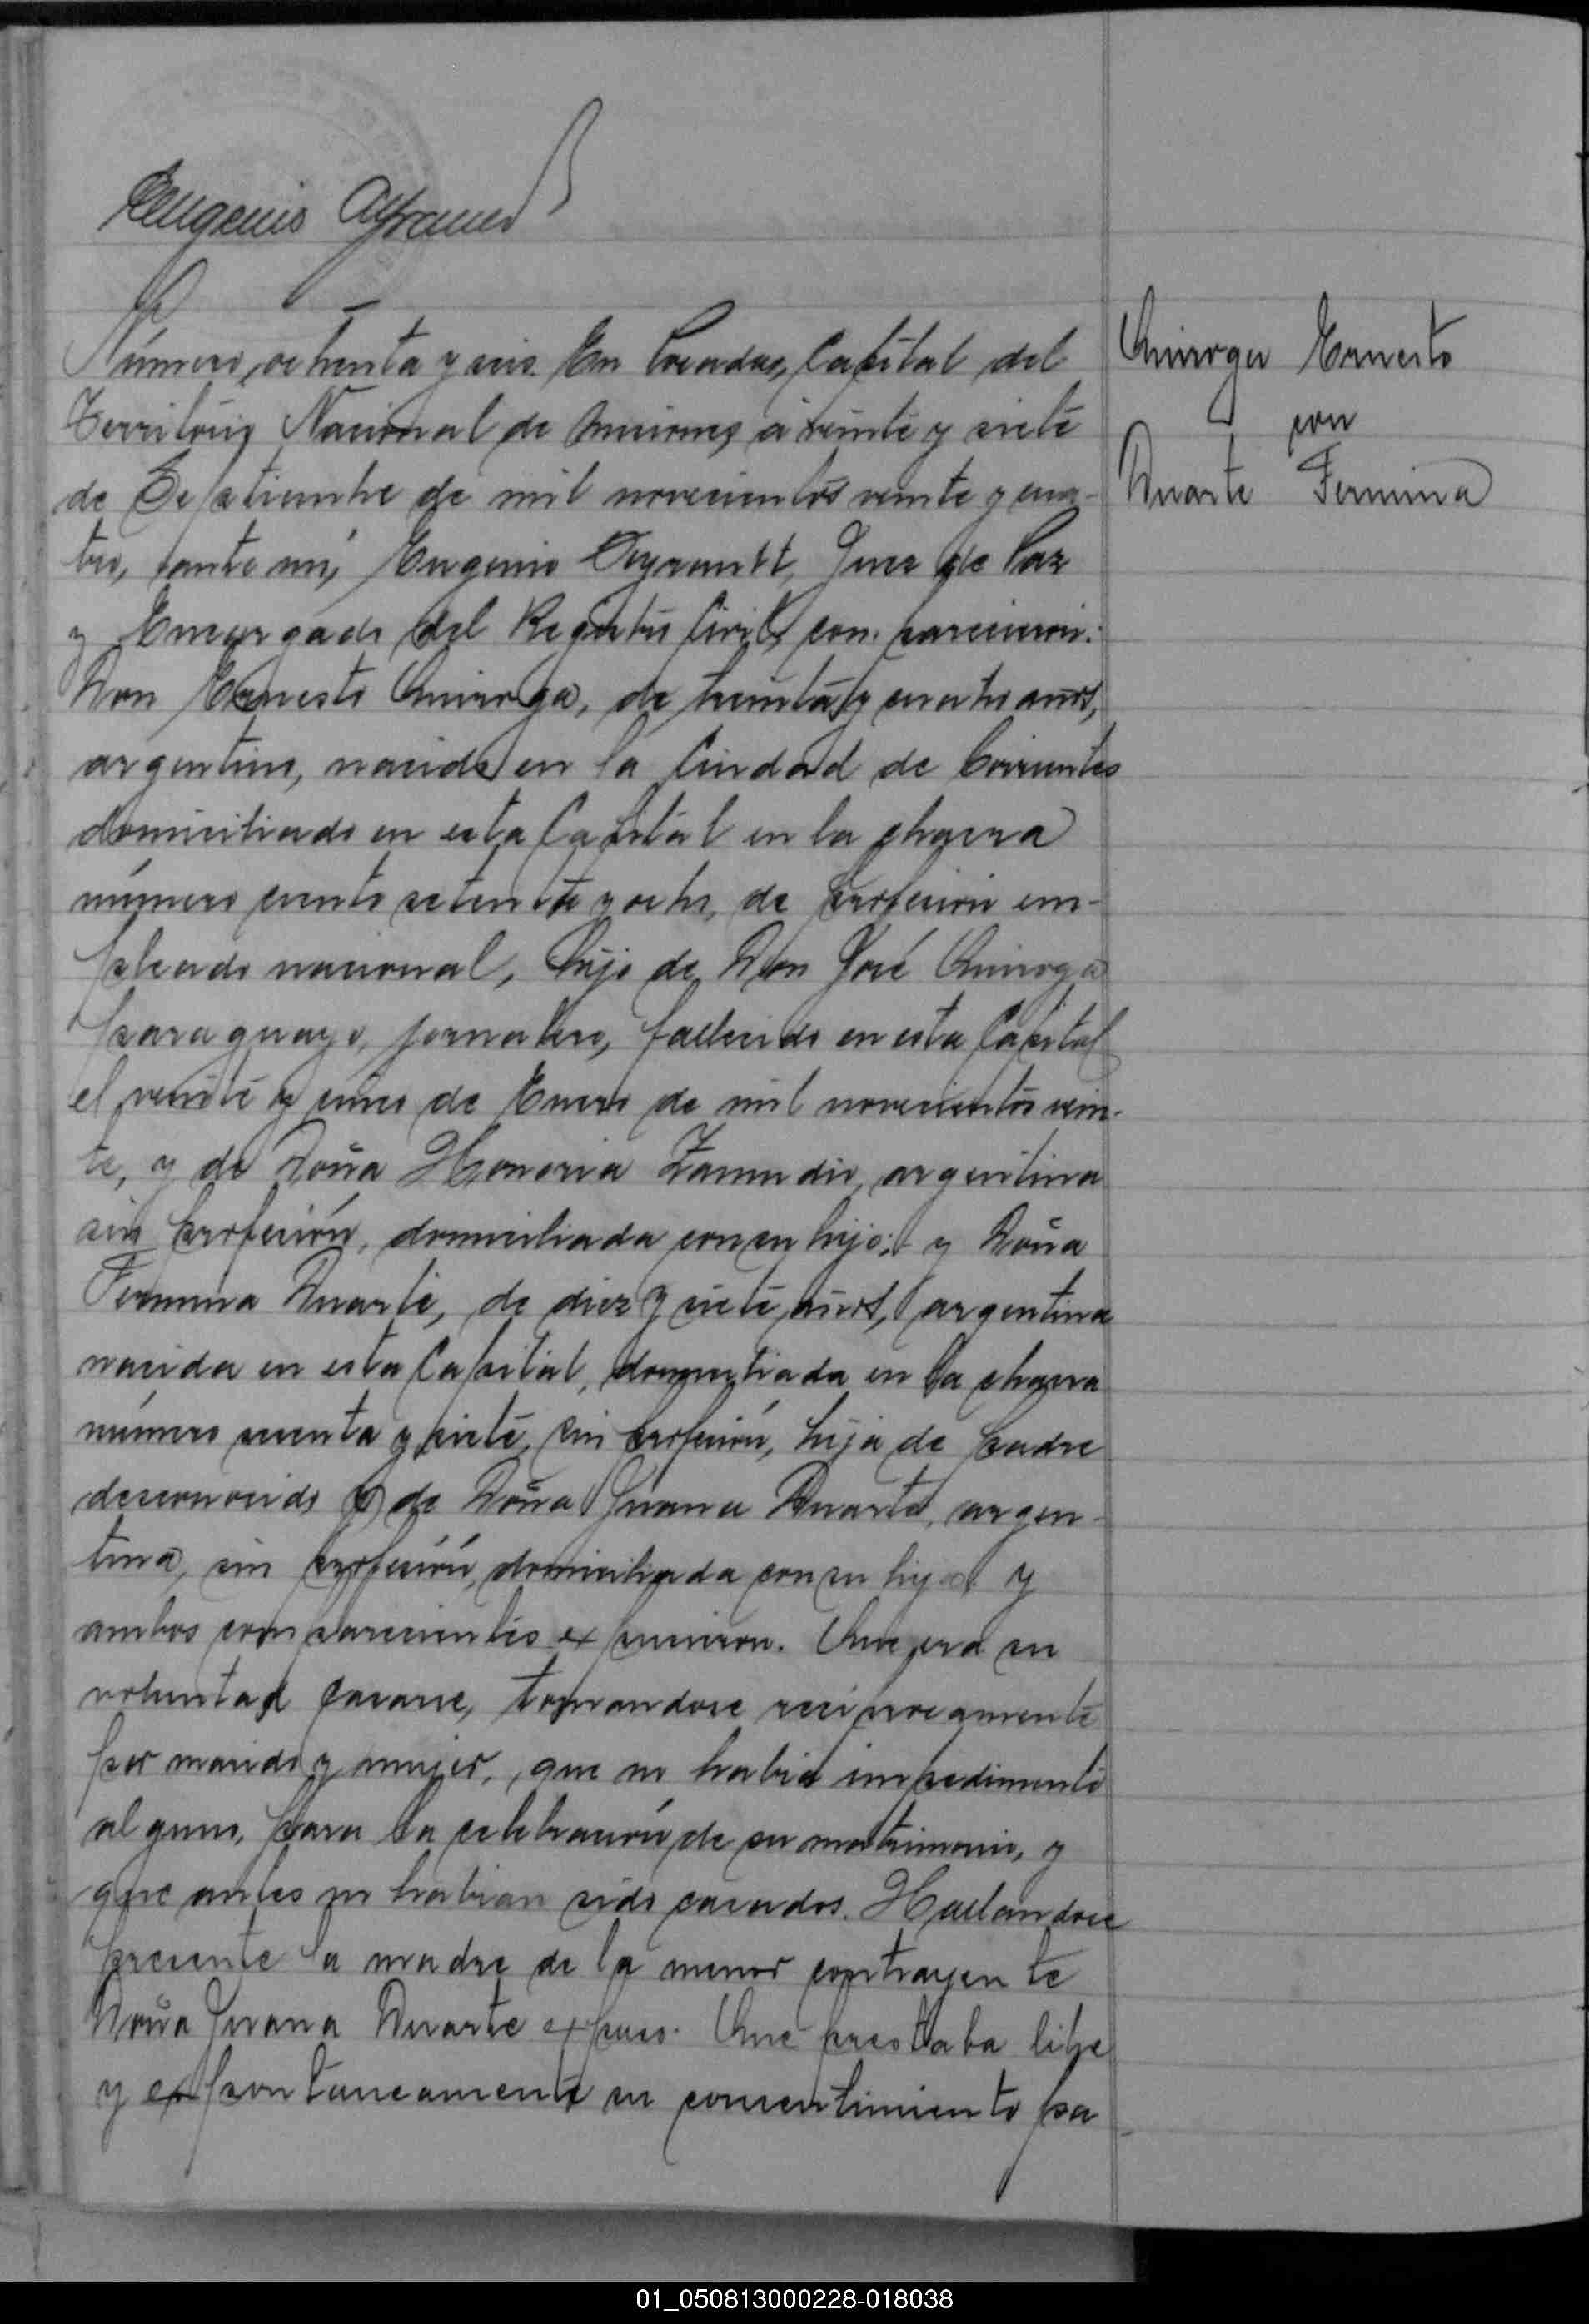 Eugenio
Número, ochenta y seis. En Posadas, Capital del
Territorio Nacional de Misiones, á veinte y siete
de Septiembre de mil novecientos veinte y cua-
tro, ante mi, Eugenio Juez de Paz
y Encargado del Registro Civil, comparecieron:
Don Ernesto Quiroga, de treinta y cuatro años,
argentino, nacido en la Ciudad de Corrientes
domiciliado en esta Capital en la chacra
número ciento setenta y ocho, de profesión em-
pleado nacional, hijo de Don José Quiroga
paraguayo, jornalero, fallecido en esta Capital
el veinte y cinco de Enero de mil novecientos vein-
te, y de Doña Honoria Zamudio, argentina
sin profesión, domiciliada con su hijo; y Doña
Fermina Duarte, de diez y siete años, argentina
nacida en esta Capital, domiciliada en la chacra
número y siete, sin profesión, hija de padre
desconocido y de Doña Juana Duarte, argen-
tina, sin profesión, domiciliada con su hija y
ambos comparecientes expusieron. Que era su
voluntad casarse, tomandose reciprocamente
por marido y mujer, que no habia impedimento
alguno, para la celebración de su matrimonio, y
que antes no habian sido casados. Hallandose
presente la madre de la menor contrayente
Doña Juana Duarte expuso. Que prestaba libre
y espontaneamente su consentimiento pa
Quiroga Ernesto
con
Duarte Fermina
01_050813000228-018038